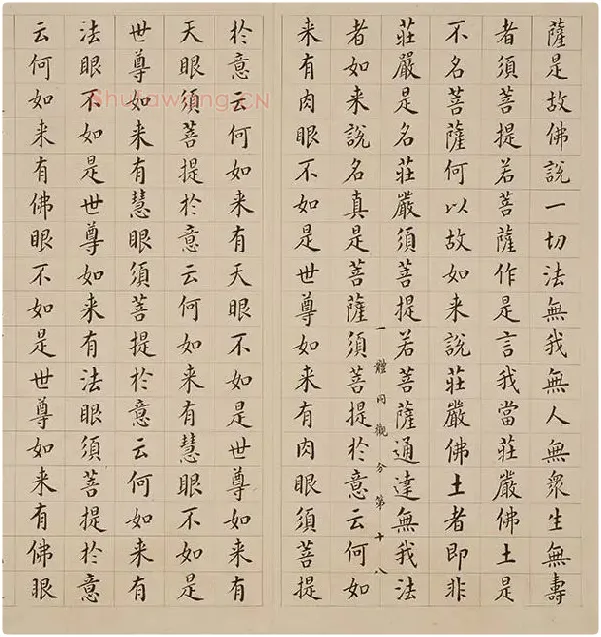 薩是故佛說一切法無我無人無衆生無壽
者須菩提若菩薩作是言我當莊嚴佛土是
不名菩薩何以故如来說莊嚴佛土者即非
莊嚴是名莊嚴須菩提若菩薩通達無我法
一體同觀分第十八
者如来說名真是菩薩須菩提於意云何如
来有肉眼不如是世尊如来有肉眼須菩提
於意云何如来有天眼不如是世尊如来有
天眼須菩提於意云何如来有慧眼不如是
世尊如来有慧眼須菩提於意云何如来有
法眼不如是世尊如来有法眼須菩提於意
云何如来有佛眼不如是世尊如来有佛眼
Shufawang.CN